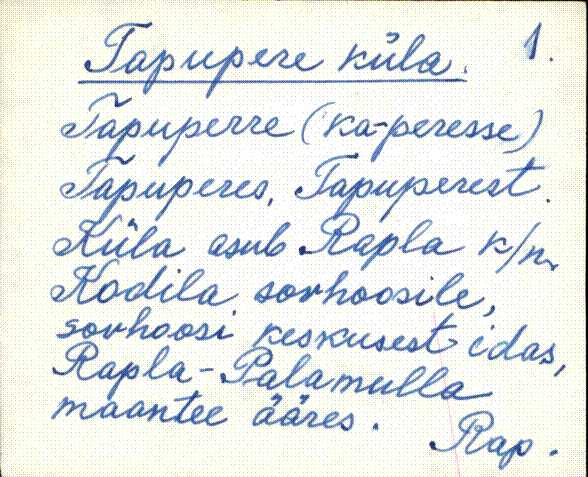 Tapupere küla. 1.
Tapuperre (ka-peresse)
Tapuperes, Tapuperest.
Küla asub Rapla k/n.
Kodila sovhoosile,
sovhoosi keskusest idas,
Rapla-Palamulla
maantee ääres.
Rap.